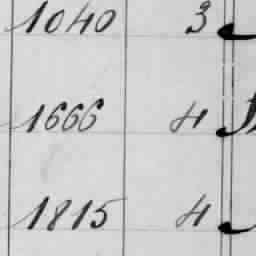 1040 3
1666 4
1815 4